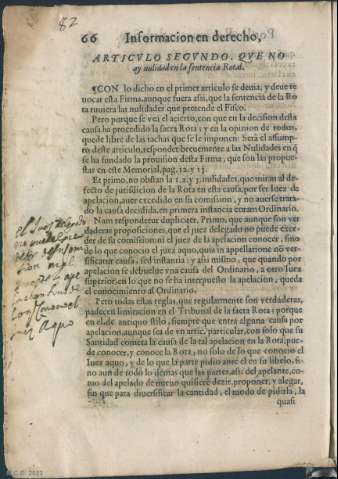 82
66 Informacion en derecho,
ARTICVLO SEGVNDO. QVE NO
ay nulidad en la sentencia Rotal.
CON lo dicho en el primer articulo se devia, y deve re
vocar esta Firma, aunque fuera assi, que la sentencia de la Ro
ta tuviera las nulidades que pretende el Fisco.
Pero porque se vea el acierto, con que en la decision desta
causa ha procedido la sacra Rota; y en la opinion de todos,
quede libre de las tachas que se le imponen: Será el assump
to deste articulo, responder brevemente a las Nulidades en q̃
se ha fundado la provision desta Firma, que son las propues
tas en este Memorial, pag. 12. y 13.
Et primo, no obstan la 1. 2. y 3. nulidades, que miran al de
fecto de jurisdicion de la Rota en esta causa, por ser Iuez de
apelacion, aver excedido en su comission, y no averse trata-
do la causa decidida, en primera instancia coram Ordinario.
Nam respondetur dupliciter. Primo, que aunque son ver
daderas proposiciones, que el juez delegado no puede exce-
der de su comission: ni el juez de la apelacion conocer, sino
de lo que conocio el juez aquo, quia in appellatione no ver-
sificatur causa, sed instantia: y assi mismo, que quando por
apelacion se debuelve vna causa del Ordinario, a otro Iuez
superior, en lo que no se ha interpuesto la apelacion, queda
el conocimiento al Ordinario.
Pero todas estas reglas, que regularmente son verdaderas,
padecen limitacion en el Tribunal de la sacra Rota: porque
en el, de antiquo stilo, siempre que entra alguna causa por
apelacion, aunque sea de vn artic. particular, con solo que su
Santidad cometa la causa de la tal apelacion en la Rota, pue-
de conocer, y conoce la Rota, no solo de lo que conocio el
Iuez aquo, y de lo que la parte pidio ante el en su libelo, si-
no aun de todo lo demas que las partes, assi del apelante, co-
mo del apelado de nuevo quisiere dezir, proponer, y alegar,
sin que para diversificar la cantidad, el modo de pidirla, la
quasi